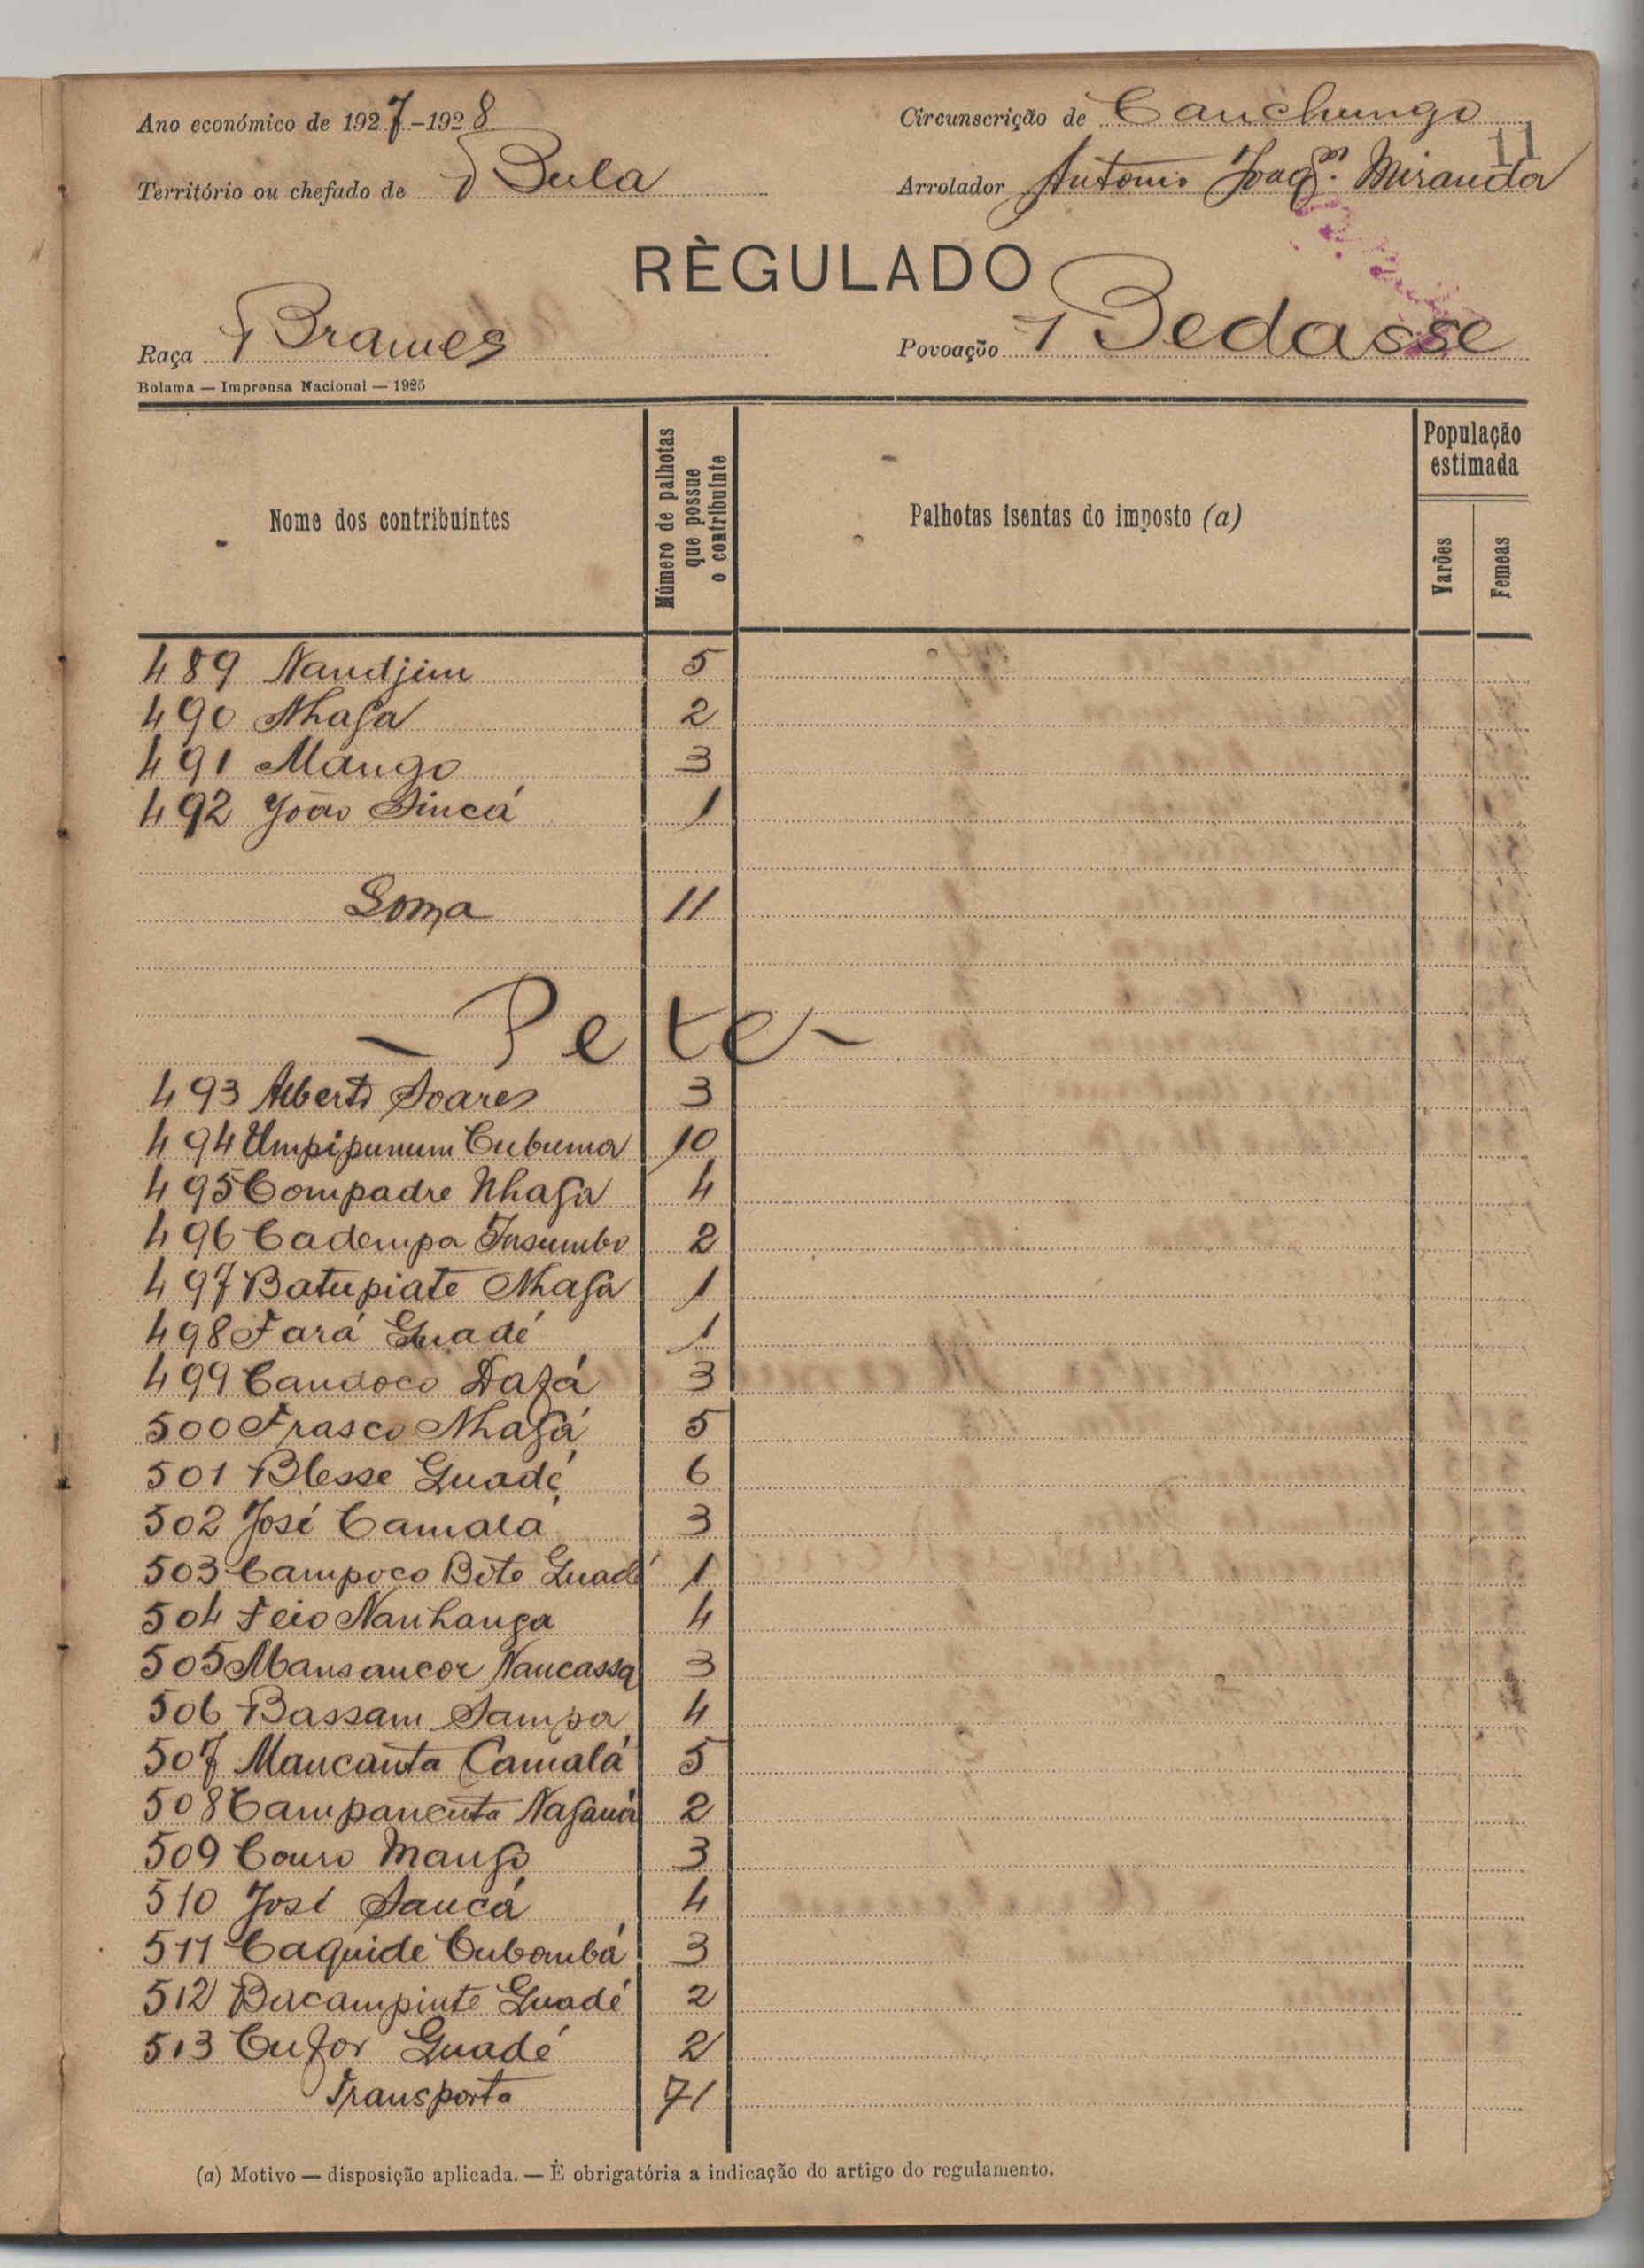 Ano económico de 1927-1928
Circunscrição de Canchungo
11
Território ou chefado de Bula
Arrolador Antonio Joaqm. Miranda
RÈGULADO
Raça Brames
Povoação Bedasse
Bolama — Imprensa Nacional — 1925
Nome dos contribuintes
Número de palhotas que possue o contribuinte
Palhotas isentas do imposto (a)
População estimada
Varões
Femeas
489 Nandjim 5
490 Nhaga 2
491 Mango 3
492 João Sincá 1
Soma 11
- Pete -
493 Alberto Soares 3
494 Umpipunum Cubuma 10
495 Compadre Nhaga 4
496 Cadempa Insumbo 2
497 Batupiate Nhaga 1
498 Fará Guadé 1
499 Candoco Dafá 3
500 Frasco Nhagá 5
501 Blesse Guadé 6
502 José Camala 3
503 Campoco Bóte Guadé 1
504 Feio Nanhanga 4
505 Mansancor Naucassa 3
506 Bassam Sampa 4
507 Mancanta Camalá 5
508 Campancuta Nagana 2
509 Couro Mango 3
510 José Sancá 4
511 Caquide Cubombá 3
512 Bacampinte Guadé 2
513 Cufor Guadé 2
Transporta 71
(a) Motivo — disposição aplicada. — É obrigatória a indicação do artigo do regulamento.